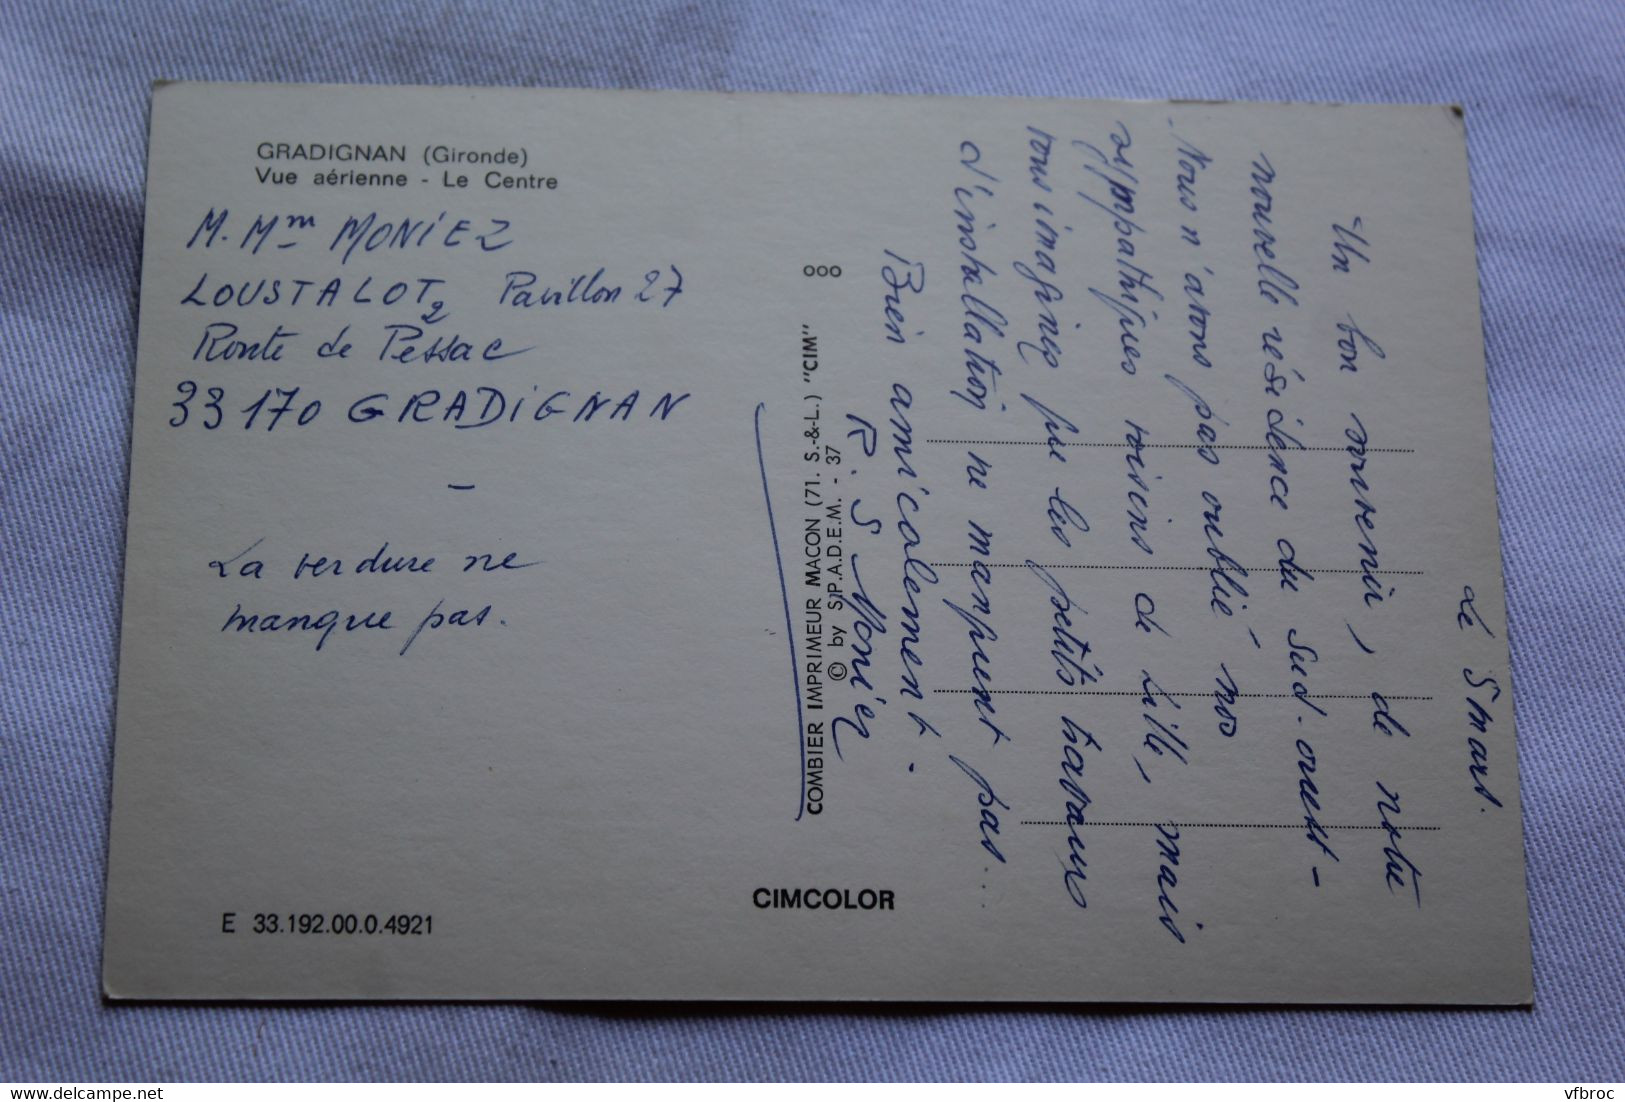 GRADIGNAN (Gironde)
Vue aérienne - Le Centre
M. Mm MONIEZ
LOUSTALOT 2 Pavillon 27
Route de Pessac
33170 GRADIGNAN
La verdure ne
manque pas.
E 33.192.00.0.4921
COMBIER IMPRIMEUR MACON (71. S.-&-L.) "CIM"
© by S.P.A.D.E.M. - 37
OOO
CIMCOLOR
Le 5 mars.
Un bon souvenir, de notre
nouvelle résidence du Sud-ouest -
Nous n'avons pas oublié nos
sympathiques voisins de Lille, mais
vous imaginez que les petits travaux
d'installation ne manquent pas...
Bien amicalement.
R. S Moniez
delcampe.net
vfbroc